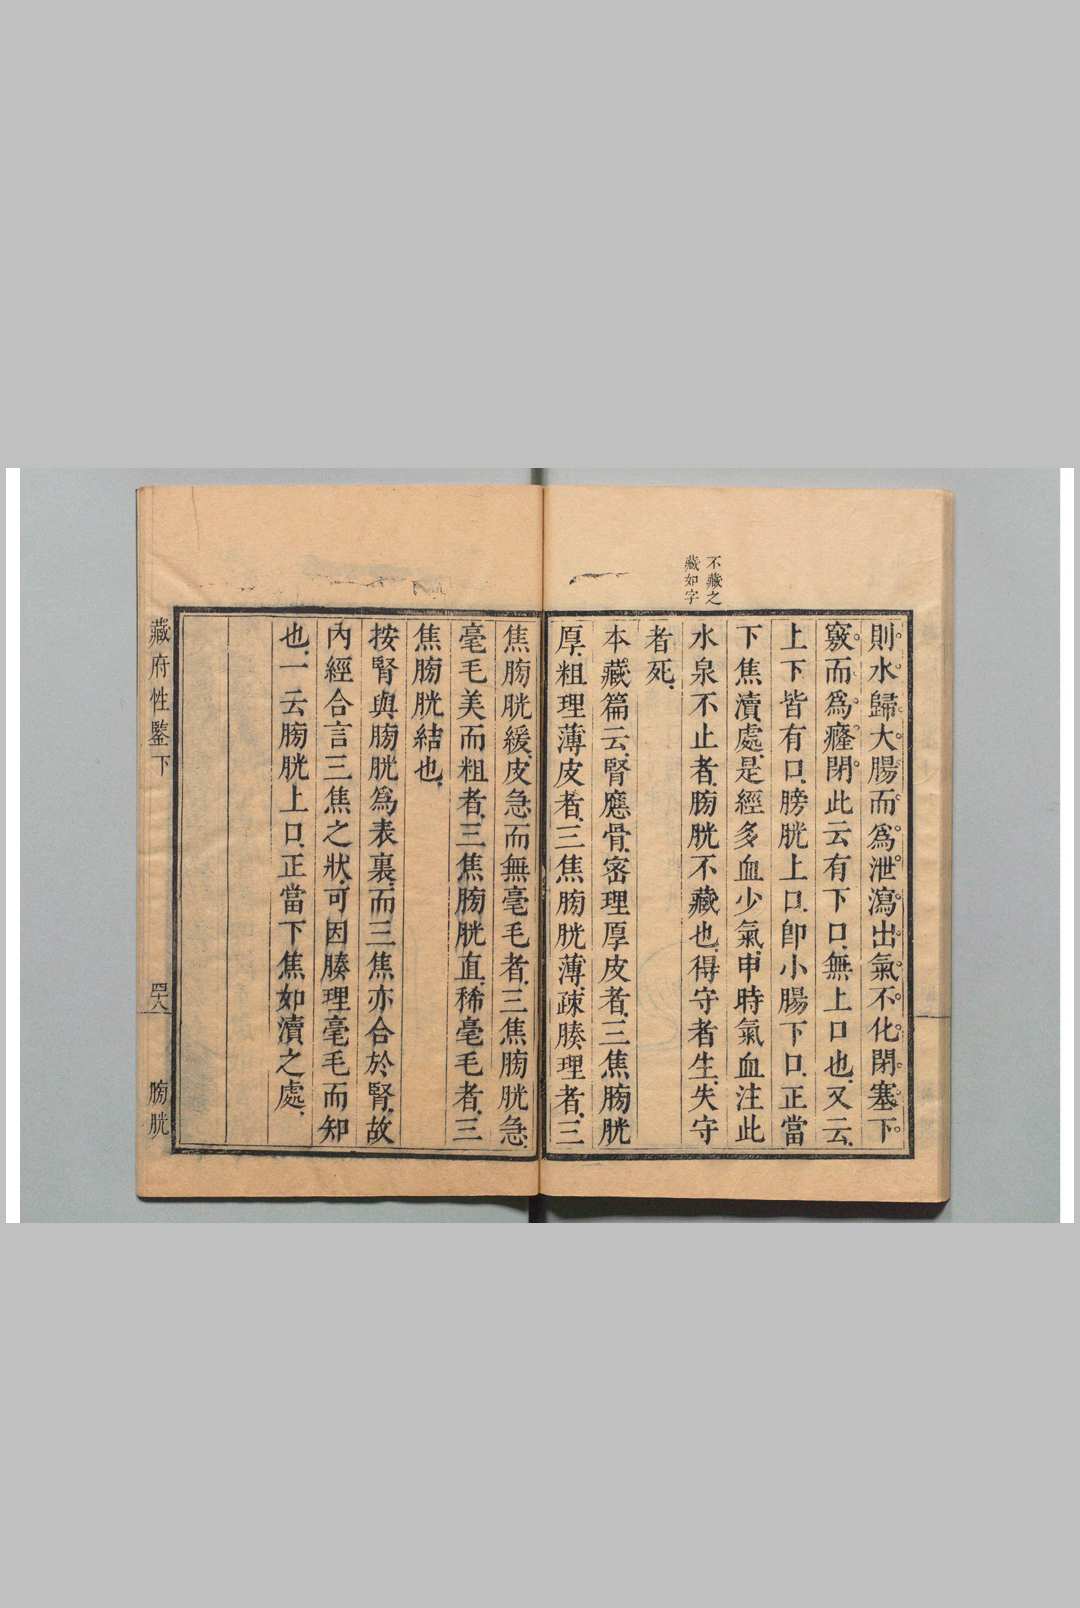 不藏之
藏如字
則水歸大腸而爲泄瀉出氣不化閉塞下
竅而爲癃閉此云有下口無上口也又云
上下皆有口膀胱上口卽小腸下口正當
下焦瀆處是經多血少氣申時氣血注此
水泉不止者膀胱不藏也得守者生失守
者死
本藏篇云腎應骨密理厚皮者三焦膀胱
厚粗理薄皮者三焦膀胱薄疎腠理者三
焦膀胱緩皮急而無毫毛者三焦膀胱急
毫毛美而粗者三焦膀胱直稀毫毛者三
焦膀胱結也
按腎與膀胱爲表裏而三焦亦合於腎故
內經合言三焦之狀可因腠理毫毛而知
也一云膀胱上口正當下焦如瀆之處
藏府性鑒下 四十八 膀胱